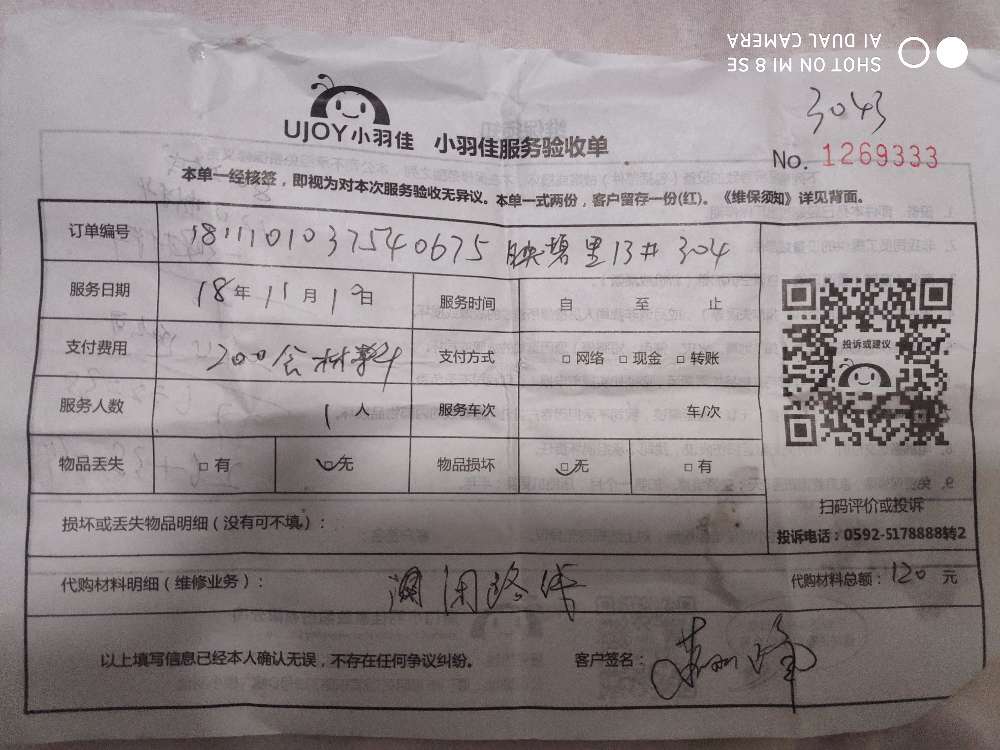 SHOT ON MI 8 SE
AI DUAL CAMERA
3043
UJOY小羽佳 小羽佳服务验收单
No. 1269333
本单一经核签，即视为对本次服务验收无异议。本单一式两份，客户留存一份(红)。《维保须知》详见背面。
订单编号 181110103754 0675 映碧里13# 304
服务日期 18年11月1日 服务时间 自 至 止
支付费用 200含材料 支付方式 □网络 □现金 □转账
服务人数 1人 服务车次 车/次
物品丢失 □有 □无 物品损坏 □无 □有
投诉或建议
扫码评价或投诉
投诉电话：0592-5178888转2
损坏或丢失物品明细（没有可不填）：
代购材料明细（维修业务）： 路线 代购材料总额：120 元
以上填写信息已经本人确认无误，不存在任何争议纠纷。 客户签名：